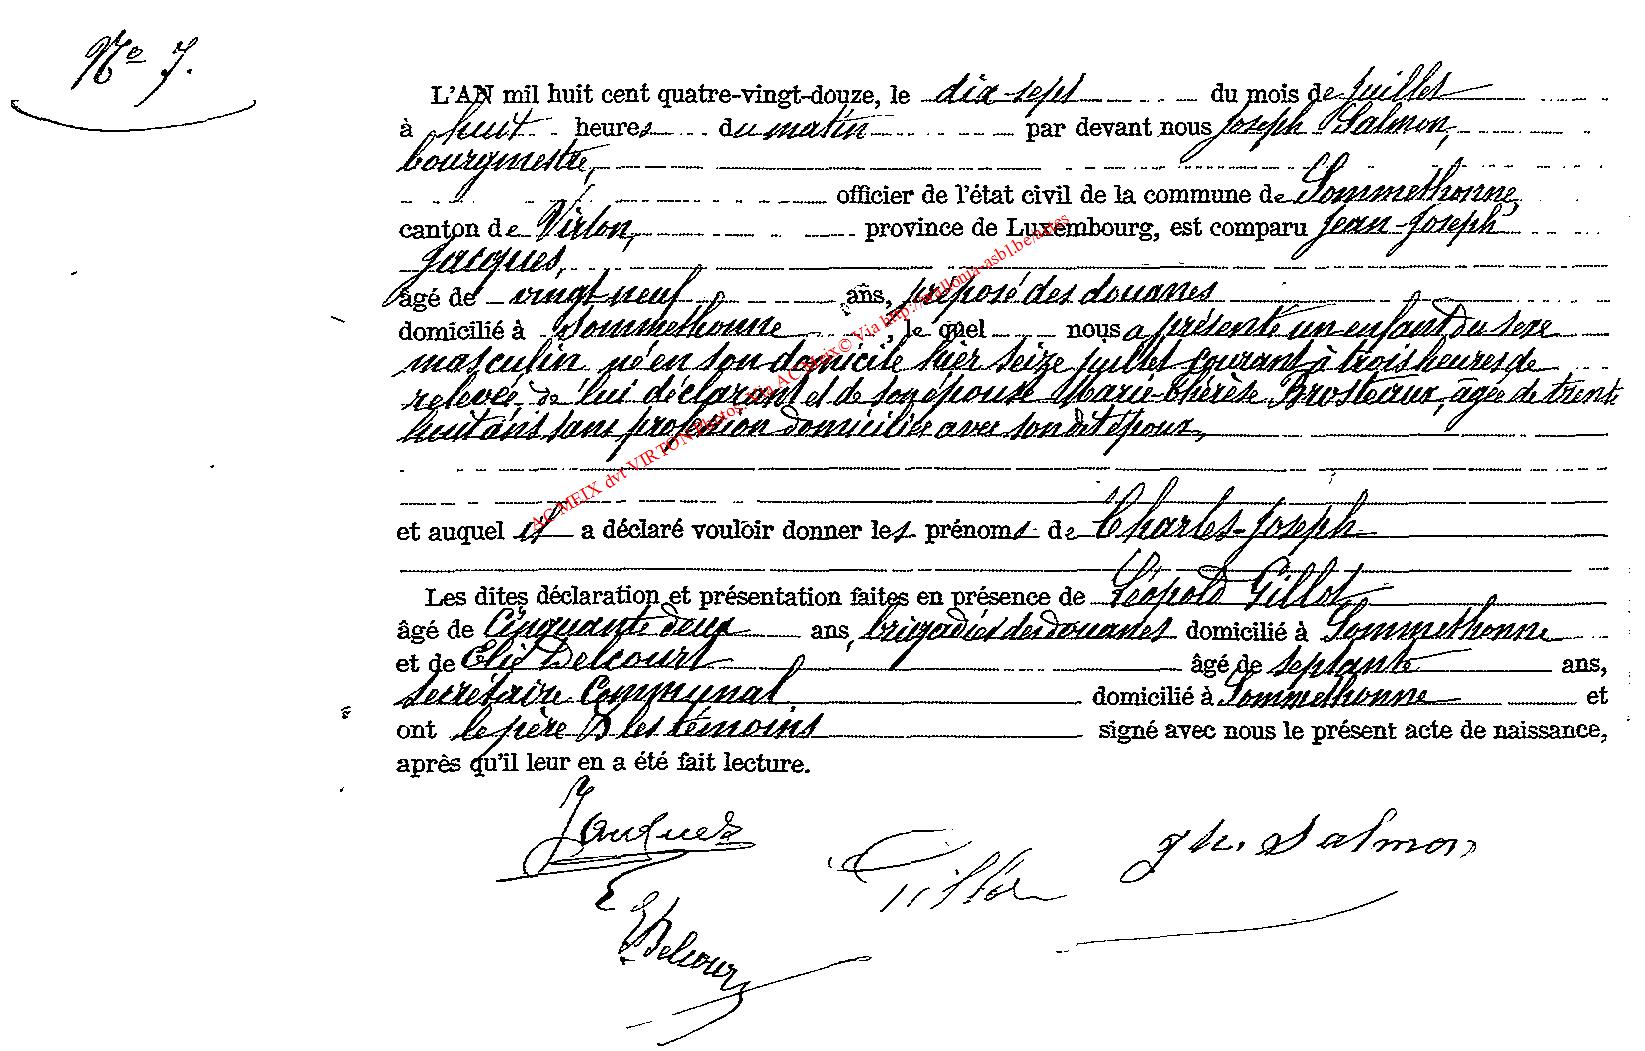 Nº 7.
L'AN mil huit cent quatre-vingt-douze, le dix-sept du mois de juillet
à huit heures du matin par devant nous Joseph Salmon,
bourgmestre,
officier de l'état civil de la commune de Sommethonne,
canton de Virton, province de Luxembourg, est comparu Jean-Joseph
Jacques,
âgé de vingt-neuf ans, préposé des douanes
domicilié à Sommethonne, le quel nous a présenté un enfant du sexe
masculin né en son domicile hier seize juillet courant à trois heures de
relevée, de lui déclarant et de son épouse Marie-Thérèse Brosteaux, âgée de trente
huit ans sans profession domiciliée avec son dit époux,
et auquel il a déclaré vouloir donner les prénoms de Charles-Joseph
Les dites déclaration et présentation faites en présence de Léopold Gillot
âgé de Cinquante deux ans, brigadier des douanes domicilié à Sommethonne
et de Elie Delcourt âgé de septante ans,
secrétaire Communal domicilié à Sommethonne et
ont le père & les témoins signé avec nous le présent acte de naissance,
après qu'il leur en a été fait lecture.
Jacques Gillot Jh. Salmon
E Delcour